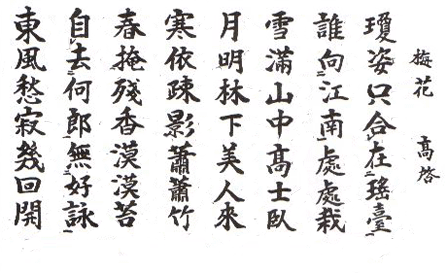 梅花 高啓
瓊姿只合在瑤臺
誰向江南處處栽
雪滿山中高士臥
月明林下美人來
寒依疎影蕭蕭竹
春掩殘香漠漠苔
自去何郎無好詠
東風愁寂幾回開